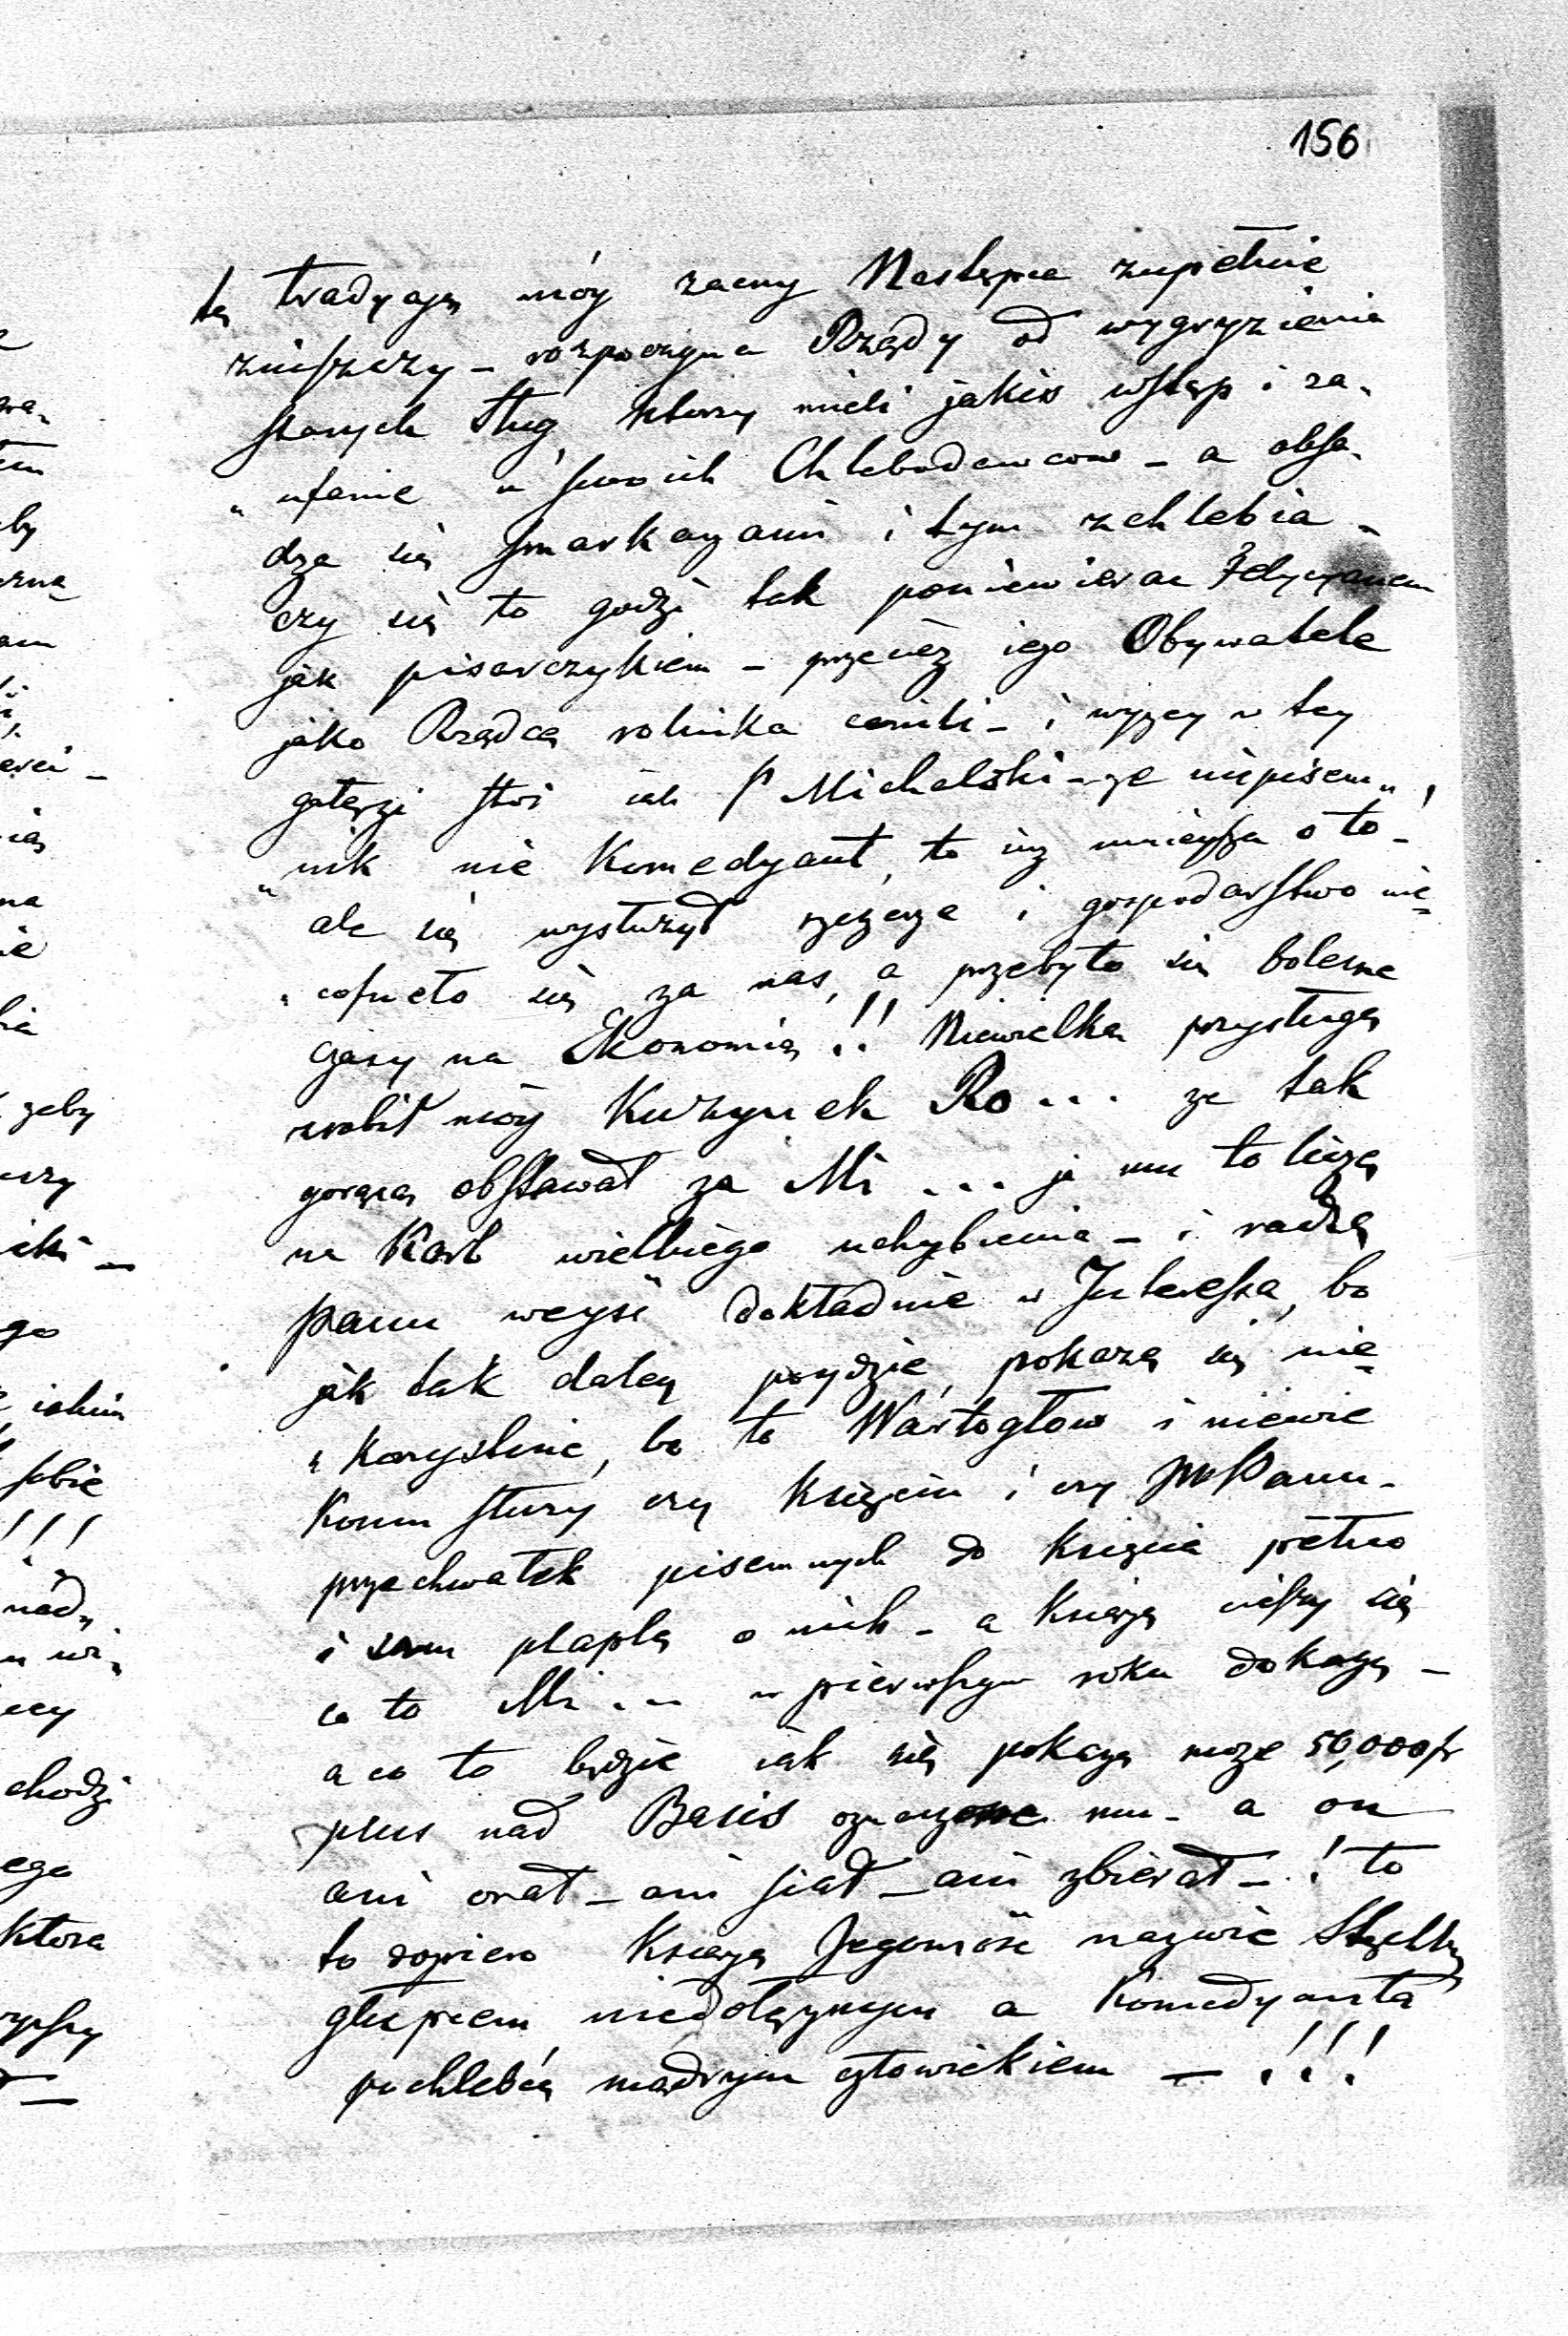 156
tę tradycyą móy zacny Następca zupełnie
zniszczy – rozpoczyna Rządy od wygryzienia
starych sług, ktorzy mieli jakiś wstęp i za„
„ufanie u swoich Chlebodawcow – a obsa„
dza się smarkaczami i tym zchlebia –
czy się to godzi tak poniewierac
jak pisarczykiem – przecież iego Obywatele
jako Rządcę rolnika cenili – i wyżey w tey
gałęzi stoi iak P Michalski – że niepisem„
„nik nie Komedyant, to iuż mnieysza o to –
ale się wysłużył szczerze i gospodarstwo nie=
„cofneło się za nas, a przebyło się bolesne
czasy na Ekonomią!! Niewielką przysługę
zrobił móy Kuzynek Ro... ze tak
gorąco obstawał za Mi ... ja mu to liczę
na Karb wielkiego uchybienia – i radzę
Panu weysć dokładnie w Interessa, bo
jak tak daley poydzie, pokażą się nie=
„korzystne, bo to Wartogłow i niewie
komu służy czy księciu i czy JWPanu –
przechwałek pisemnych do księcia pełno
i sam plaplą o nich – a książę cieszy się
co to Mi ... w pierwszym roku dokazą –
a co to będzie iak się pokażą może 50,000 fr
plus nad Basis oznaczone mu – a on
ani orał – ani siał – ani zbierał – ! to
to dopiero Książę Jegomość nazwie
głupcem, niedołężnym a Komedyanta
pochlebcę mądrym człowiekiem – !!!